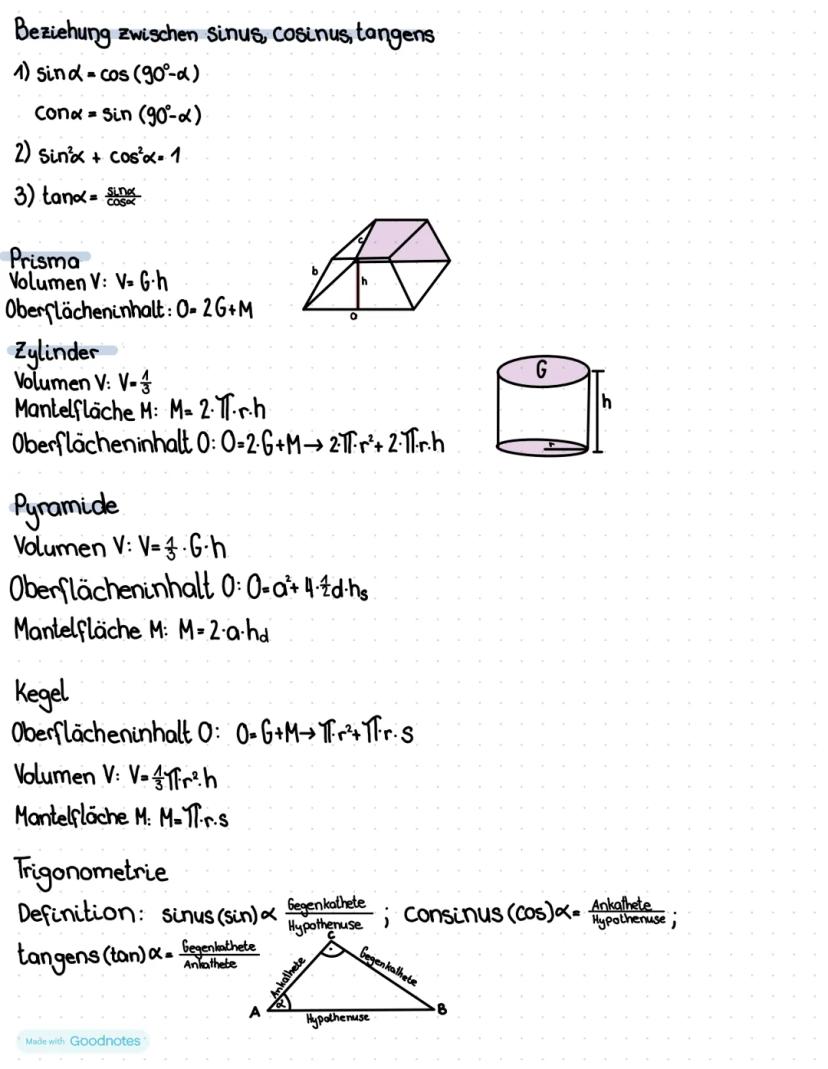 Beziehung zwischen sinus, cosinus, tangens
1) sinα = cos (90°-α)
conα = sin (90°-α)
2) sin²α + cos²α = 1
3) tanα = sinα/cosα
Prisma
Volumen V: V= G·h
Oberflächeninhalt: O= 2G+M
c
b
h
a
Zylinder
Volumen V: V= 1/3
Mantelfläche M: M= 2·π·r·h
Oberflächeninhalt O: O=2·G+M→ 2π·r²+ 2·π·r·h
G
h
r
Pyramide
Volumen V: V= 1/3 ·G·h
Oberflächeninhalt O: O=a²+ 4·1/2d·hs
Mantelfläche M: M=2·a·hd
Kegel
Oberflächeninhalt O: O=G+M→ π·r²+π·r·s
Volumen V: V= 1/3π·r²·h
Mantelfläche M: M=π·r·s
Trigonometrie
Definition: sinus (sin)α Gegenkathete/Hypothenuse ; consinus (cos)α= Ankathete/Hypothenuse ;
tangens (tan)α= Gegenkathete/Ankathete
C
Ankathete
Gegenkathete
α
A
B
Hypothenuse
Made with Goodnotes